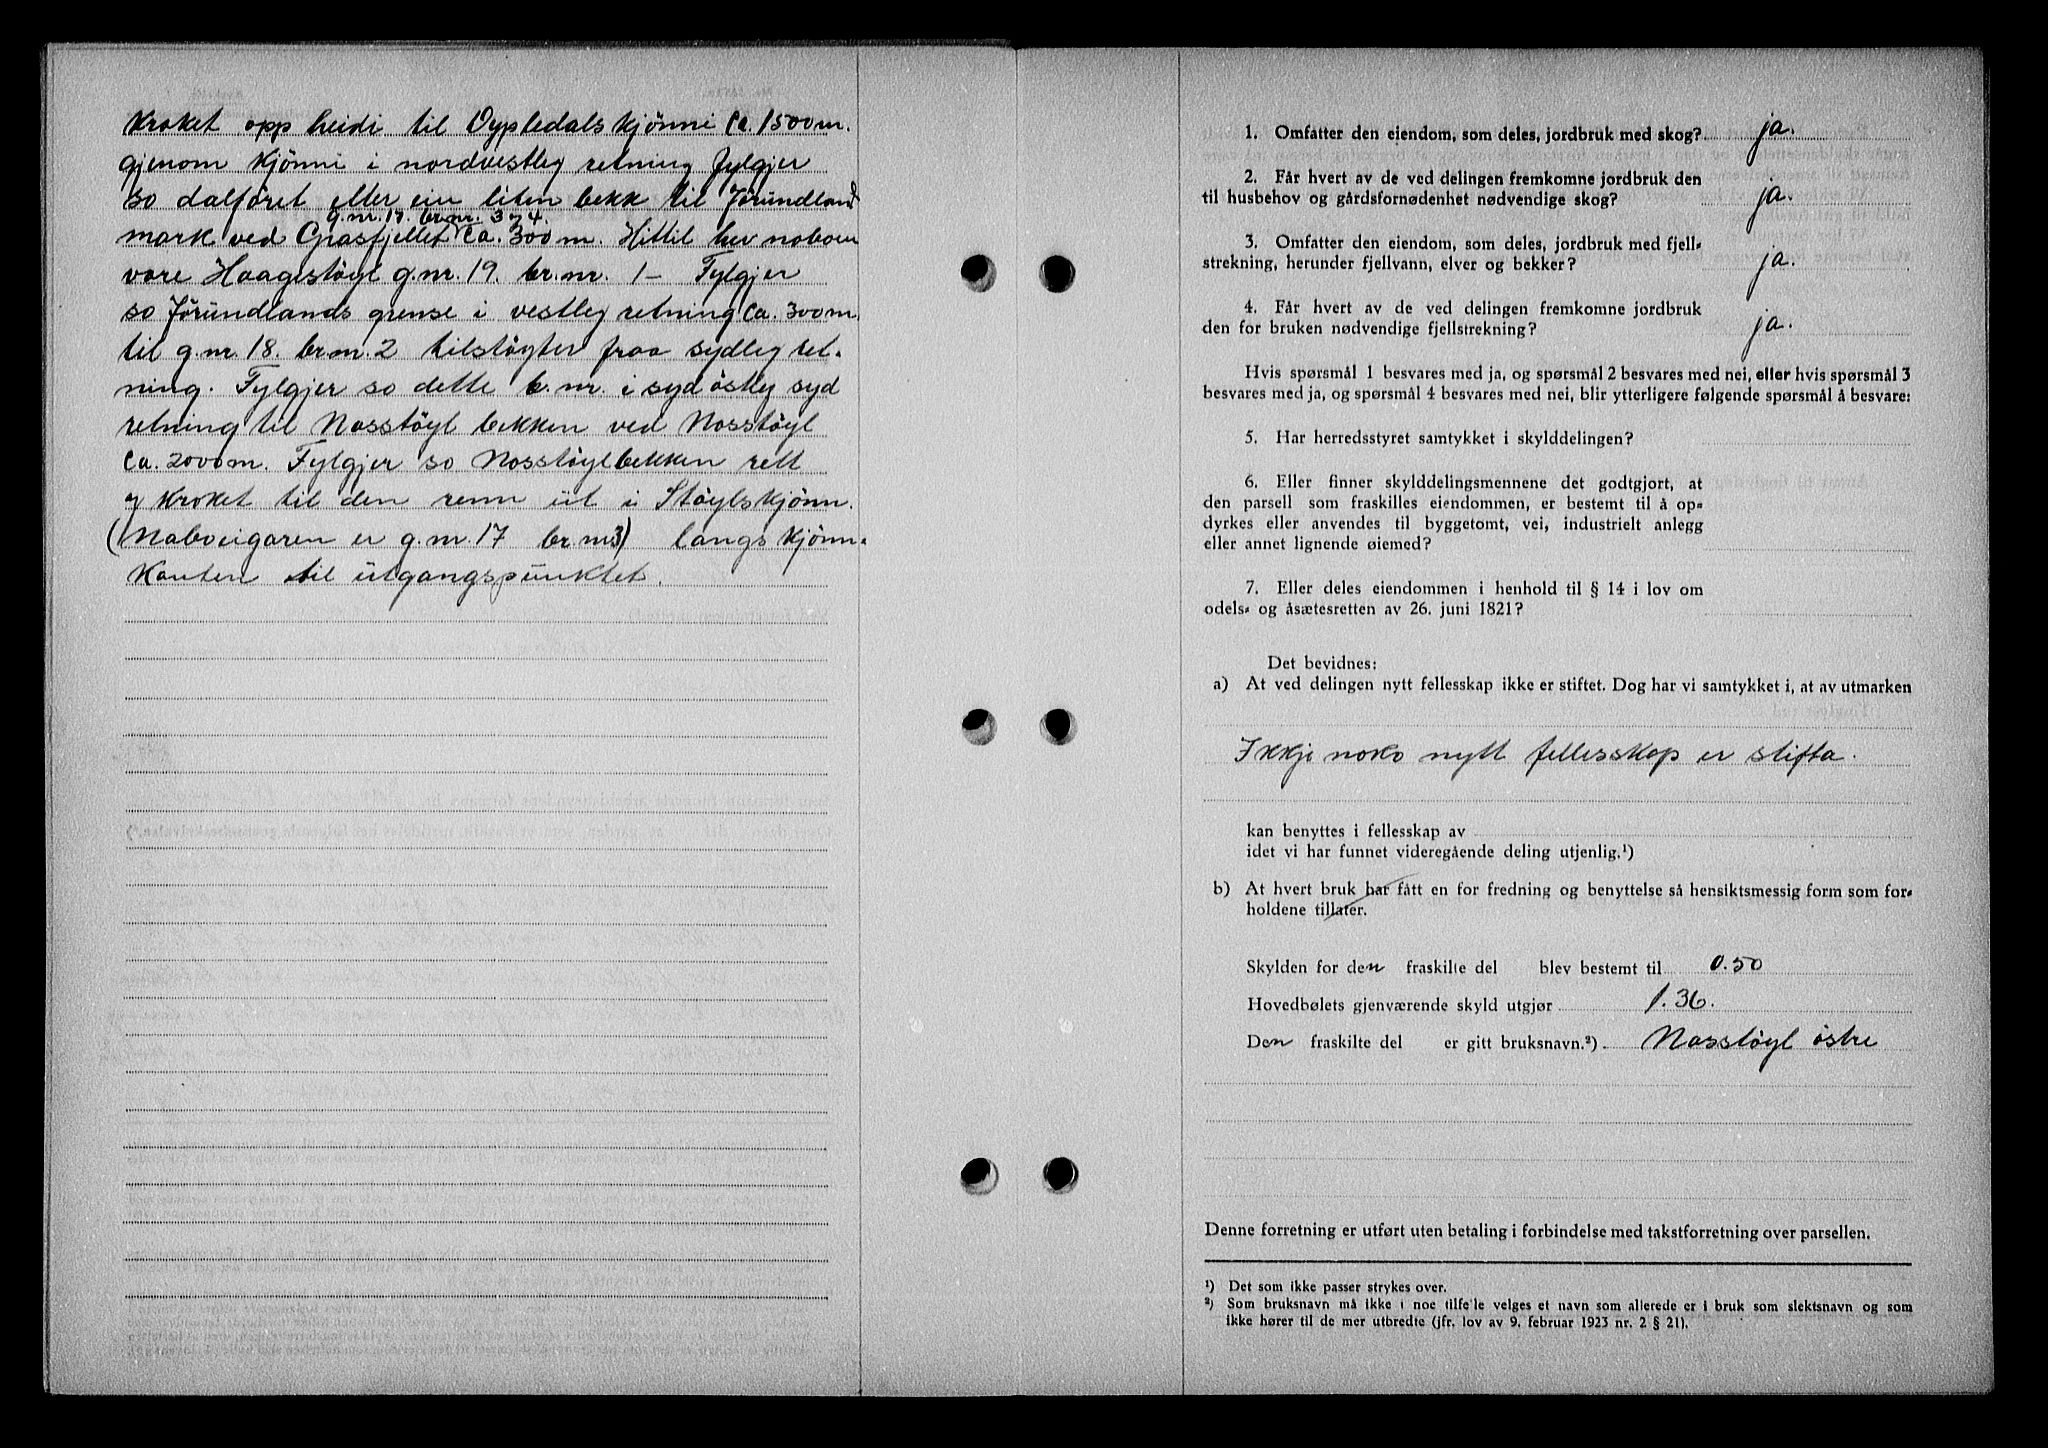 kroket opp heidi til Dypledalskjönni ca. 1500 m.
gjenom kjönni i nordvestleg retning fylgjer
so dalföret etter ein liten bekk til Jörundland
g.nr. 17. br.nr. 3 og 4.
mark ved Grasfjellet ca. 300 m. Hittil hev naboen
vore Haagestöyl g.nr. 19. br.nr. 1 - Fylgjer
so Jörundlands grense i vestleg retning ca. 300 m.
til g.nr. 18. br.nr. 2 tilstöyter fraa sydleg ret-
ning. Fylgjer so dette b.nr. i syd östleg syd
retning til Nosstöyl bekken ved Nosstöyl
ca. 2000 m. Fylgjer so Nosstöylbekken rett
og kroket til den renn ut i Stöylskjönn.
(Naboeigaren er g.nr. 17 br.nr 3) langs kjönn-
kanten til utgangspunktet.
1. Omfatter den eiendom, som deles, jordbruk med skog? ja.
2. Får hvert av de ved delingen fremkomne jordbruk den
til husbehov og gårdsfornødenhet nødvendige skog? ja.
3. Omfatter den eiendom, som deles, jordbruk med fjell-
strekning, herunder fjellvann, elver og bekker? ja.
4. Får hvert av de ved delingen fremkomne jordbruk
den for bruken nødvendige fjellstrekning? ja.
Hvis spørsmål 1 besvares med ja, og spørsmål 2 besvares med nei, eller hvis spørsmål 3
besvares med ja, og spørsmål 4 besvares med nei, blir ytterligere følgende spørsmål å besvare:
5. Har herredsstyret samtykket i skylddelingen?
6. Eller finner skylddelingsmennene det godtgjort, at
den parsell som fraskilles eiendommen, er bestemt til å op-
dyrkes eller anvendes til byggetomt, vei, industrielt anlegg
eller annet lignende øiemed?
7. Eller deles eiendommen i henhold til § 14 i lov om
odels- og åsætesretten av 26. juni 1821?
Det bevidnes:
a) At ved delingen nytt fellesskap ikke er stiftet. Dog har vi samtykket i, at av utmarken
Ikkje noko nytt fellesskap er stifta.
kan benyttes i fellesskap av
idet vi har funnet videregående deling utjenlig.¹)
b) At hvert bruk har fått en for fredning og benyttelse så hensiktsmessig form som for-
holdene tillater.
Skylden for den fraskilte del blev bestemt til 0.50
Hovedbølets gjenværende skyld utgjør 1.36.
Den fraskilte del er gitt bruksnavn.²) Nosstöyl östre
Denne forretning er utført uten betaling i forbindelse med takstforretning over parsellen.
¹) Det som ikke passer strykes over.
²) Som bruksnavn må ikke i noe tilfelle velges et navn som allerede er i bruk som slektsnavn og som
ikke hører til de mer utbredte (jfr. lov av 9. februar 1923 nr. 2 § 21).